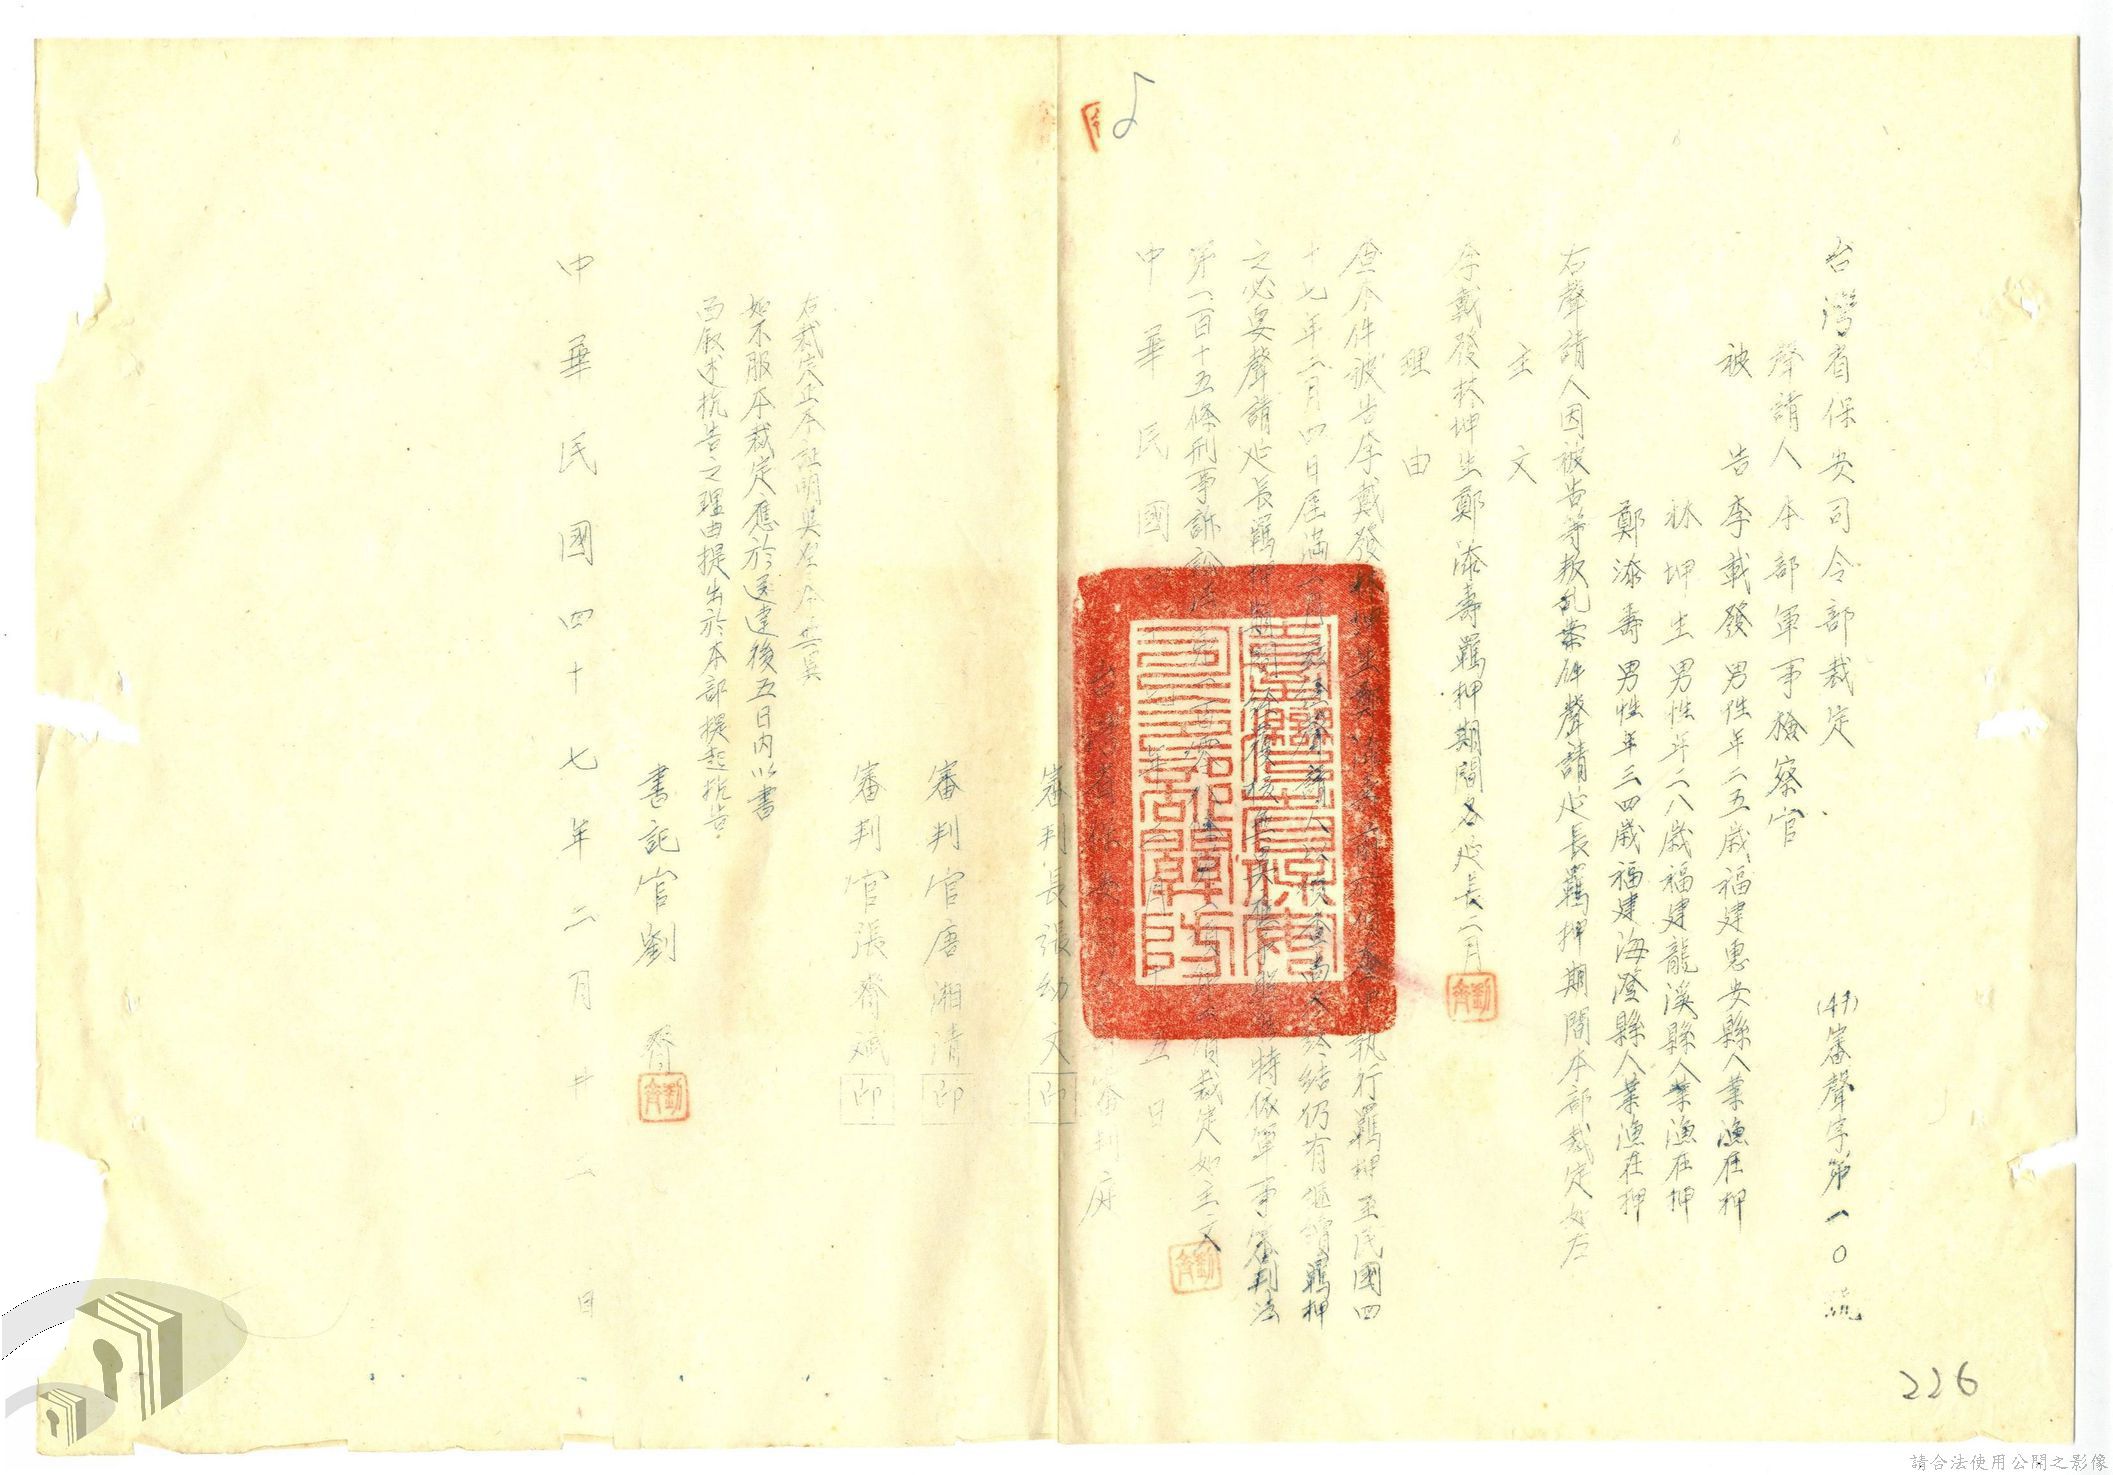 台灣省保安司令部裁定
(47)審聲字第一〇號
聲請人本部軍事檢察官
被告李載發男性年二五歲福建惠安縣人業漁在押
林坤生男性年二八歲福建龍溪縣人業漁在押
鄭添壽男性年三四歲福建海澄縣人業漁在押
右聲請人因被告等叛乱案件聲請延長羈押期間本部裁定如左
主文
李載發林坤生鄭添壽羈押期間各延長二月
理由
查本件被告李戴發林坤生鄭添壽前於偵查中執行羈押至民國四
十七年二月四日屆滿二月茲經聲請人以偵查尚未終結仍有繼續羈押
之必要聲請延長羈押期間二月核無異應予照准特依軍事審判法
第一百十五條刑事訴訟法第一百零八條第一項第二項裁定如主文
中華民國 年二月十五日
台灣省保安司令部審判庭
審判長張幼文印
審判官唐湘清印
審判官張齊斌印
右裁定正本証明與原本無異
如不服本裁定應於送達後五日內以書
面敘述抗告之理由提出於本部提起抗告
書記官劉齊
中華民國四十七年二月廿二日
226
請合法使用公開之影像